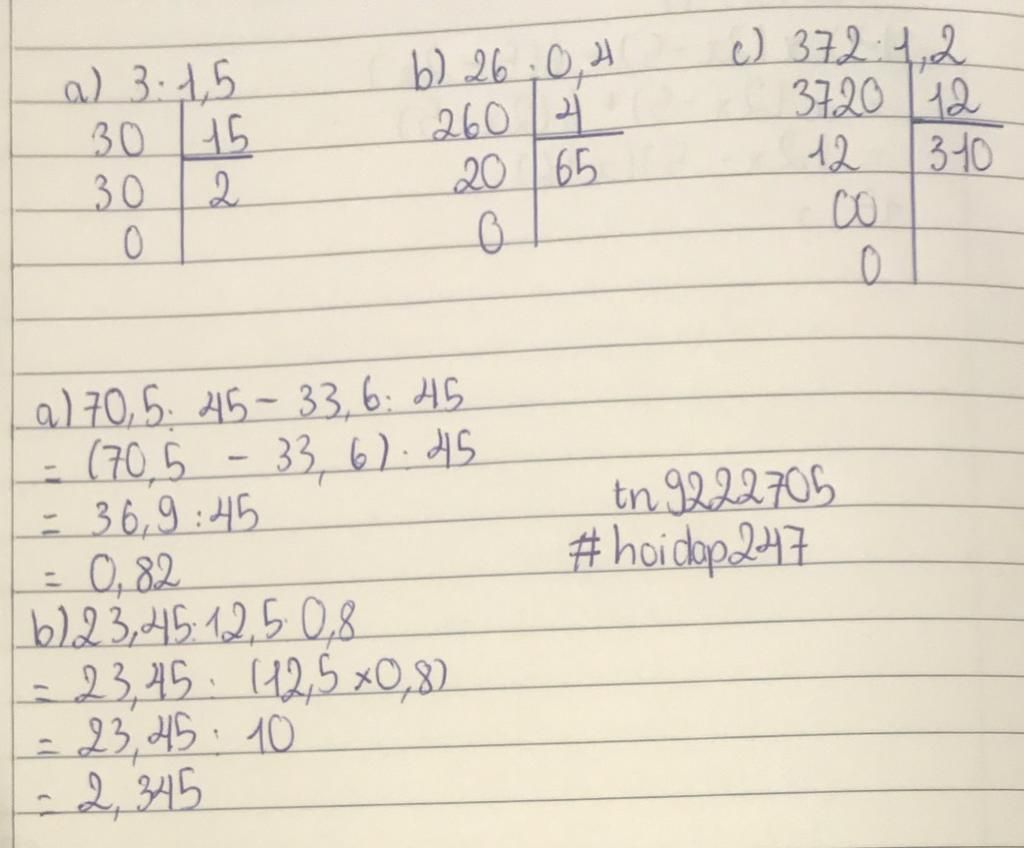 a) 3:1,5
30 15
30 2
0
b) 26:0,4
260 4
20 65
0
c) 372:1,2
3720 12
12 310
00
0
a) 70,5: 45 - 33,6: 45
= (70,5 - 33,6): 45
= 36,9:45
= 0,82
tn9222705
#hoidap247
b) 23,45:12,5:0,8
= 23,45: (12,5 x 0,8)
= 23,45: 10
= 2,345